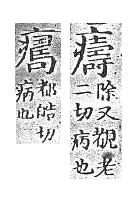 㿒
除又覩老
二切病也
都皓切
病也